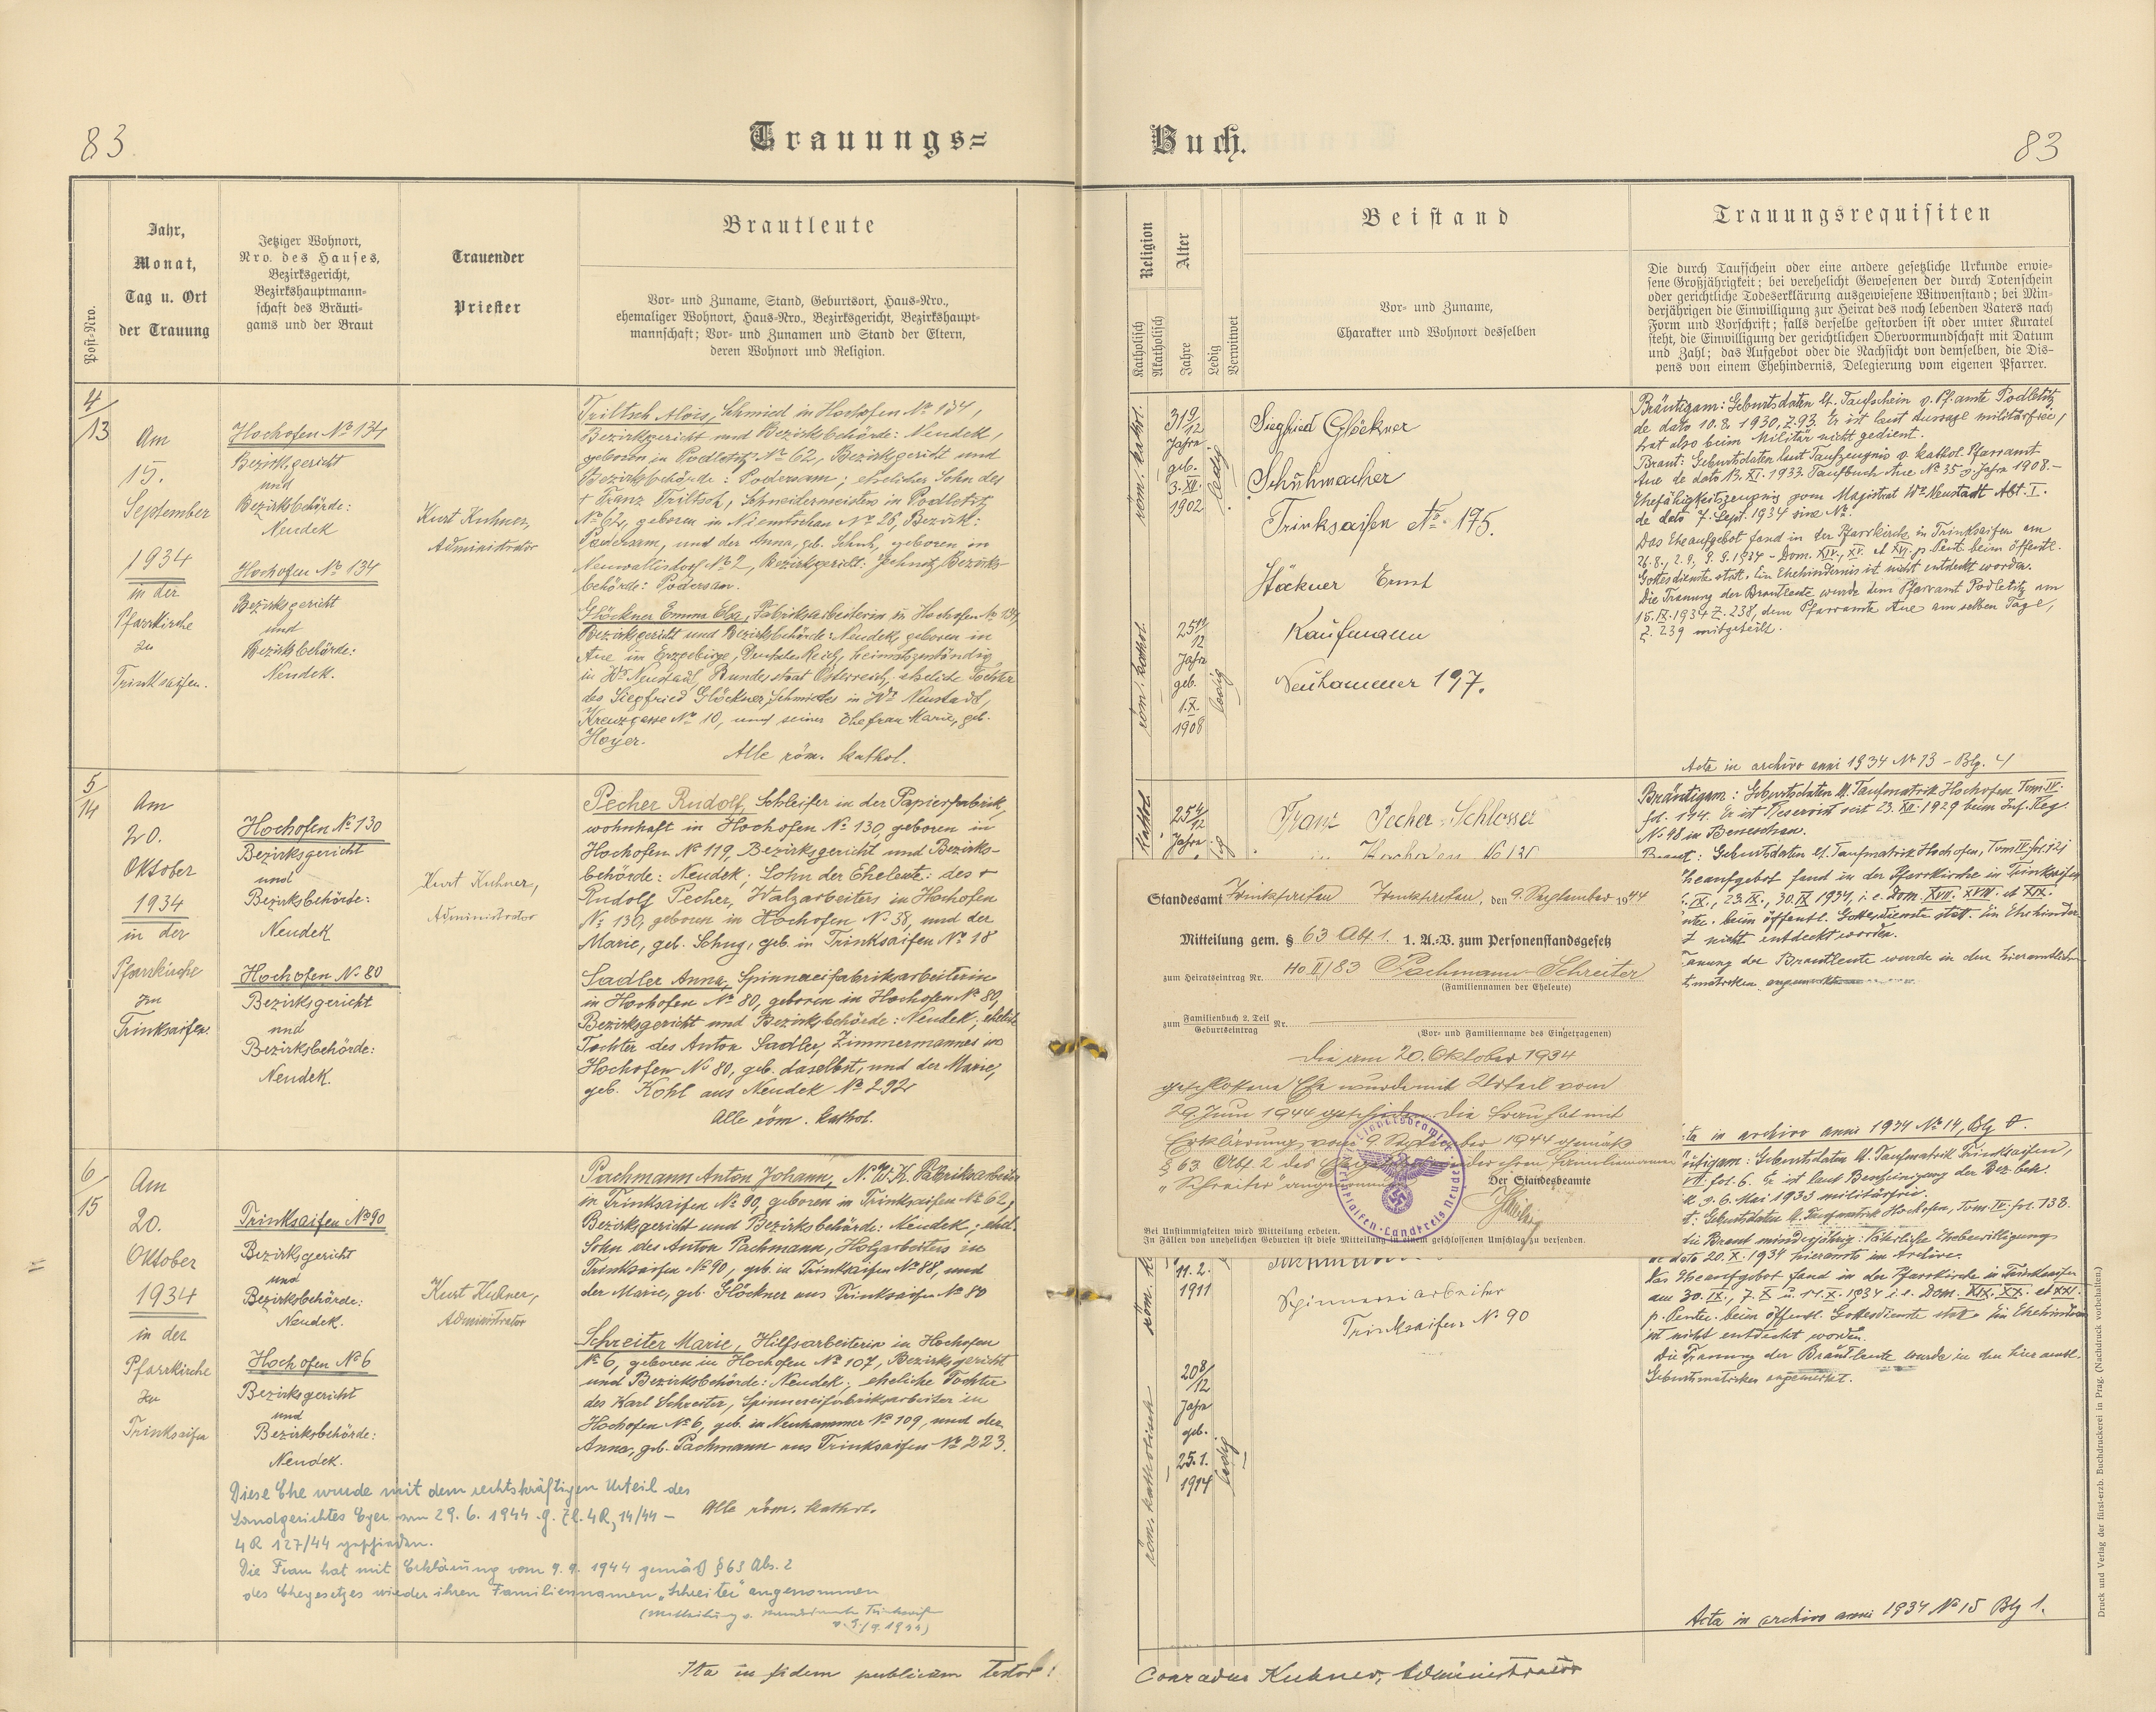 83.
Trauungs=
Jahr,
Monat,
Tag u. Ort
der Trauung
Post-Nro.
Jetziger Wohnort,
Nro. des Hauses,
Bezirksgericht,
Bezirkshauptmann-
schaft des Bräuti-
gams und der Braut
Trauender
Priester
Brautleute
Vor- und Zuname, Stand, Geburtsort, Haus-Nro.,
ehemaliger Wohnort, Haus-Nro., Bezirksgericht, Bezirkshaupt-
mannschaft; Vor- und Zunamen und Stand der Eltern,
deren Wohnort und Religion.
4/13
Am
15.
September
1934
in der
Pfarrkirche
zu
Trinksaifen.
Hochofen No 134
Bezirksgericht
und
Bezirksbehörde:
Neudek
Hochofen No 134
Bezirksgericht
und
Bezirksbehörde:
Neudek.
Kurt Kuhner,
Administrator
Triltsch Alois, Schmied in Hochofen No 134,
Bezirksgericht und Bezirksbehörde: Neudek,
geboren in Podletitz No 62, Bezirksgericht und
Bezirksbehörde: Podersam; ehelicher Sohn des
+ Franz Triltsch, Schneidermeisters in Podletitz
No 62, geboren in Niemtschau No 26, Bezirk:
Podersam, und der Anna, geb. Schuh, geboren in
Neuwallisdorf No 2, Bezirksgericht: Jechnitz, Bezirks-
behörde: Podersam.
Glöckner Emma Elsa, Fabriksarbeiterin in Hochofen No 134,
Bezirksgericht und Bezirksbehörde: Neudek, geboren in
Aue im Erzgebirge, Deutsches Reich, heimatzuständig
in Wr Neustadt, Bundesstaat Österreich, eheliche Tochter
des Siegfried Glöckner, Schmiedes in Wr Neustadt,
Kreuzgasse No 10, und seiner Ehefrau Marie, geb.
Hoyer.
Alle röm. kathol.
5/14
Am
20.
Oktober
1934
in der
Pfarrkirche
zu
Trinksaifen.
Hochofen No 130
Bezirksgericht
und
Bezirksbehörde:
Neudek
Hochofen No 80
Bezirksgericht
und
Bezirksbehörde:
Neudek.
Kurt Kuhner,
Administrator
Pecher Rudolf, Schleifer in der Papierfabrik,
wohnhaft in Hochofen No 130, geboren in
Hochofen No 119, Bezirksgericht und Bezirks-
behörde: Neudek; Sohn der Eheleute: des +
Rudolf Pecher, Walzarbeiters in Hochofen
No 130, geboren in Hochofen No 38, und der
Marie, geb. Schug, geb. in Trinksaifen No 18
Sadler Anna, Spinnereifabriksarbeiterin
in Hochofen No 80, geboren in Hochofen No 80,
Bezirksgericht und Bezirksbehörde: Neudek; eheliche
Tochter des Anton Sadler, Zimmermannes in
Hochofen No 80, geb. daselbst, und der Marie,
geb. Kohl aus Neudek No 292
Alle röm. kathol.
6/15
Am
20.
Oktober
1934
in der
Pfarrkirche
zu
Trinksaifen
Trinksaifen No 90
Bezirksgericht
und
Bezirksbehörde:
Neudek.
Hochofen No 6
Bezirksgericht
und
Bezirksbehörde:
Neudek.
Kurt Kuhner,
Administrator
Pachmann Anton Johann, N. W. K. Fabriksarbeiter
in Trinksaifen No 90, geboren in Trinksaifen No 62,
Bezirksgericht und Bezirksbehörde: Neudek; ehel.
Sohn des Anton Pachmann, Holzarbeiters in
Trinksaifen No 90, geb. in Trinksaifen No 88, und
der Marie, geb. Glöckner aus Trinksaifen No 80
Schreiter Marie, Hilfsarbeiterin in Hochofen
No 6, geboren in Hochofen No 107, Bezirksgericht
und Bezirksbehörde: Neudek; eheliche Tochter
des Karl Schreiter, Spinnereifabriksarbeiter in
Hochofen No 6, geb. in Neuhammer No 109, und der
Anna, geb. Pachmann aus Trinksaifen No 223.
Alle röm. kathol.
Diese Ehe wurde mit dem rechtskräftigen Urteil des
Landgerichtes Eger vom 29. 6. 1944 g. Zl. 4R, 14/44 –
4 R 127/44 geschieden.
Die Frau hat mit Erklärung vom 9. 9. 1944 gemäß § 63 Abs. 2
des Ehegesetzes wieder ihren Familiennamen „Schreiter" angenommen
(Mitteilung v. Standesamte Trinksaifen
v. 9./9. 1944)
Ita in fidem publicam testor:
Buch.
83
Religion
Katholisch
Akatholisch
Alter
Jahre
Ledig
Verwitwet
Beistand
Vor- und Zuname,
Charakter und Wohnort desselben
Trauungsrequisiten
Die durch Taufschein oder eine andere gesetzliche Urkunde erwie-
sene Großjährigkeit; bei verehelicht Gewesenen der durch Totenschein
oder gerichtliche Todeserklärung ausgewiesene Witwenstand; bei Min-
derjährigen die Einwilligung zur Heirat des noch lebenden Vaters nach
Form und Vorschrift; falls derselbe gestorben ist oder unter Kuratel
steht, die Einwilligung der gerichtlichen Obervormundschaft mit Datum
und Zahl; das Aufgebot oder die Nachsicht von demselben, die Dis-
pens von einem Ehehindernis, Delegierung vom eigenen Pfarrer.
röm. kathol.
31 9/12
Jahre
geb.
3. XII.
1902
ledig
röm. kathol.
25 11/12
Jahre
geb.
1. X.
1908
ledig
Siegfried Glöckner
Schuhmacher
Trinksaifen No. 175.
Stöckner Ernst
Kaufmann
Neuhammer 197.
Bräutigam: Geburtsdaten lt. Taufschein v. Pf.amte Podletitz
de dato 10. 8. 1930, Z. 93. Er ist laut Aussage militärfrei,
hat also beim Militär nicht gedient.
Braut: Geburtsdaten laut Taufzeugnis v. kathol. Pfarramt
Aue de dato 13. XI. 1933. Taufbuch Aue No 35 v. Jahre 1908.–
Ehefähigkeitszeugnis vom Magistrat Wr Neustadt Abt. I.
de dato 7. Sept. 1934 sine No.
Das Eheaufgebot fand in der Pfarrkirche in Trinksaifen am
26. 8., 2. 9., 9. 9. 1934 – Dom. XIV., XV. et XVI. p. Pent. beim öffentl.
Gottesdienste statt. Ein Ehehindernis ist nicht entdeckt worden.
Die Trauung der Brautleute wurde dem Pfarramt Podletitz am
15. IX. 1934 Z. 238, dem Pfarramte Aue am selben Tage,
Z. 239 mitgeteilt.
Acta in archivo anni 1934 No 13 – Blg. 4
kathol.
25 4/12
Jahre
Franz Pecher Schlosser
Bräutigam: Geburtsdaten lt. Taufmatrik Hochofen Tom IV.
fol. 194. Er ist Reservist seit 23. XII. 1929 beim Inf. Reg.
No 48 in Beneschau.
Braut: Geburtsdaten lt. Taufmatrik Hochofen, Tom IV
heaufgebot fand in der Pfarrkirche in Trinksaifen
IX., 23. IX., 30. IX 1934, i. e. Dom. XVII. XVIII. et XIX.
beim öffentl. Gottesdienste statt. Ein Ehehinder-
nicht entdeckt worden.
rauung der Brautleute wurde in den hieramtlichen
matriken angemerkt
ta in archivo anni 1934 No 14, Blg
Standesamt Trinkseifen Trinkseifen, den 9. September 1944
Mitteilung gem. § 63 Abs. 1. 1. A.-V. zum Personenstandsgesetz
zum Heiratseintrag Nr. Ho II/83 Pachmann – Schreiter
(Familiennamen der Eheleute)
zum Familienbuch 2. Teil
Geburtseintrag Nr.
(Vor- und Familienname des Eingetragenen)
Die am 20. Oktober 1934
geschlossene Ehe wurde mit Urteil vom
29. Juni 1944 geschieden. Die Frau hat mit
Erklärung vom 9. September 1944 gemäß
§ 63 Abs. 2 des Ehegesetzes wieder ihren Familiennamen
„Schreiter" angenommen.
Der Standesbeamte
Bei Unstimmigkeiten wird Mitteilung erbeten.
In Fällen von unehelichen Geburten ist diese Mitteilung in einem geschlossenen Umschlag zu versenden.
11. 2.
1911
Spinnereiarbeiter
Trinksaifen No 90
röm. katholisch
20 8/12
Jahre
geb.
25. 1.
1914
ledig
utigam: Geburtsdaten lt. Taufmatrik Trinksaifen,
fol. 6. Er ist laut Bescheinigung der Bez. beh.
6. Mai 1933 militärfrei.
t: Geburtsdaten lt. Taufmatrik Hochofen, Tom. IV. fol. 138.
die Braut minderjährig: Väterliche Ehebewilligung
de dato 20. X. 1934 hieramts im Archive.
Das Eheaufgebot fand in der Pfarrkirche in Trinksaifen
am 30. IX., 7. X. u. 14. X. 1934 i. e. Dom. XIX. XX. et XXI.
p. Pentec. beim öffentl. Gottesdienste statt. Ein Ehehindernis
ist nicht entdeckt worden.
Die Trauung der Brautleute wurde in den hieramtl.
Geburtsmatriken angemerkt.
Acta in archivo anni 1934 No 15 Blg 1.
Conradus Kuhner, Administrator
Druck und Verlag der fürst-erzb. Buchdruckerei in Prag. (Nachdruck vorbehalten.)